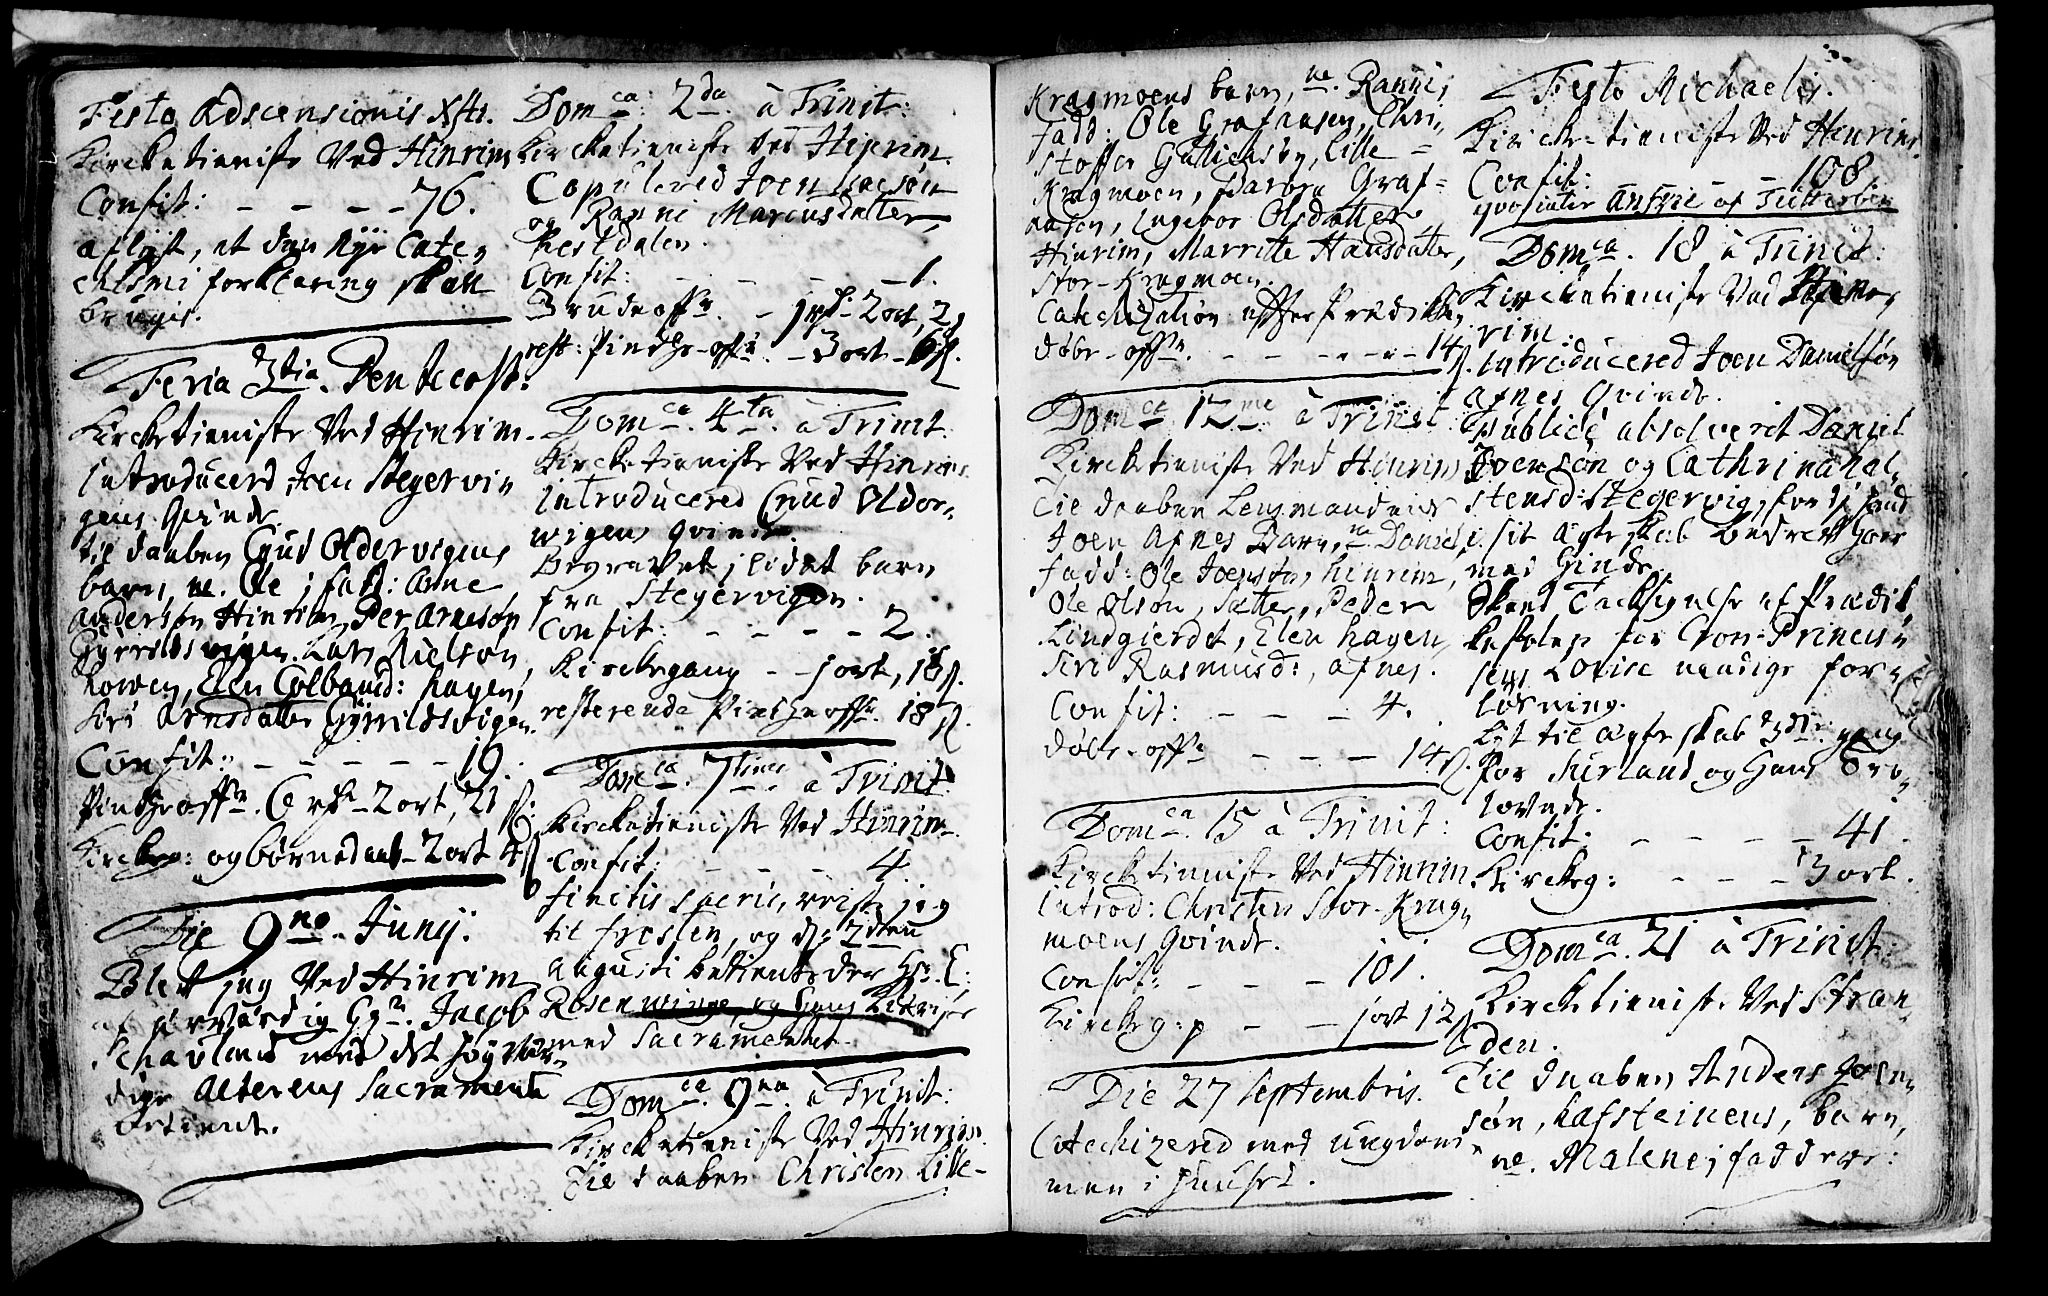 Festo Adscensionis Xsti.
Kircketieniste Ved Hinrim
Confit: - - - - 76.
aflyst, at den Nÿe Cate,
chismi forklaring skall
brugis.
Feria 3tia. Pentecost:
Kircketieniste Ved Hinrim.
introducerd Joen Stegervi,
gens Qvinde
til daaben Cnud Oldervigens
barn, ne. Ole; fadd: Arne
anderson Hinrim, Per Arneson
Gÿrrildsvigen. Lars Nielson
Rowen, Elen Colbaned: hagen,
Kiri Arnsdatter Gÿrrildsvigen.
Confit: - - - - - 19.
Pintzeoffr. 6 rdr 2 ort, 21 s:
Kirckeg: og børnedaab - 2 ort 4 s.
Die 9no. Junij.
Blef jeg Ved Hinrim
af ærværdig Hr. Jacob
Schavland med det høyvær,
dige Alterens Sacramente
betient.
Domca: 2da. à Trinit:
Kircketieniste Ved Hinrim.
Copulered Joen Isacsön
og Ranni Marcusdatter,
Restdalen.
Confit: - - - - 1.
Brudeoffr. - 1 rdr 2 ort, 2 s
rest: Pindtz-offr. - 3 ort - 6 s.
Domca. 4ta. à Trinit.
Kircketieniste Ved Hinrim.
introducered Cnud Oldor,
wigens qvinde.
Begravet j lidet barn
fra Stegervigen.
Confit: - - - - 2.
Kirckegang - - 1 ort, 18 s.
resterende Pintzeoffr. 18 s.
Domca. 7tima. à Trinit:
Kircketieniste Ved Hinrim.
Confit: - - - 4
finitis sacris, reiste jeg
til frosten, og d. 2den
Augusti betiente der Hr. E:
Rosenwinge, og Hans Kierriste
med Sacramentet.
Domca. 9na. à Trinit:
Kircketieniste Ved Hinrim.
Til daaben Christen Lille-
Kragmoens barn, ne. Ranni;
fadd: Ole Grafaasen, Chri,
stoffer Gulliensby, Lille =
Kragmoen, Barbra Graf=
aasen, Ingebor Olsdatter
Hinrim, Marritte Hansdatter,
Stor-Kragmoen.
Catechization effter Prædiken
døbe-offr. - - - - - 14 s.
Domca 12me. à Trinit.
Kircketieniste Ved Hinrim
Til daaben Lensmandens
Joen Afnes Barn, ne Daniel;
fadd: Ole Joenson, hinrim,
Ole Olson, Satter, Peder
Lindgierdet, Elen hagen,
Siri Rasmusd:, afnes.
Confit: - - - 4.
døbe-offr - - - - 14 s.
Domca. 15 à Trinit:
Kircketieniste Ved Hinrim
introd: Christen Stor-Krag,
moens Qvinde.
Confit: - - - 101.
Kirckeg: - - 1 ort 12 s
Die 27 Septembris.
Catechizered med ungdom,
men i Huuset.
Festo Michaelis.
Kircketieniste Ved Hinrim.
Confit: - - - 108.
qvos inter af Tutterbin
Domca. 18 à Trinit:
Kircketieniste Ved Hin,
rim.
introducered Joen Danielsøn
afnes Qvinde.
publicè absolveret Daniel
Svensøn og Cathrina Hal,
stensd: Stegervig, for
sit ægteskab bedrevet Hoer
med Hinde.
Skeed Tacksigelse af Prædik,
kestolen for Cron-Princes,
sens Lovise naadige for,
løsning.
Lÿst til ægteskab 3die gang
for Surland og Hans tro,
lovede.
Confit: - - - - 41.
Kirckeg: - - - 3 ort.
Domca. 21 à Trinit:
Kircketieniste Ved Stran,
den.
Til daaben Anders Joen,
søn, Kafsteinens, barn,
ne. Malene; faddere: